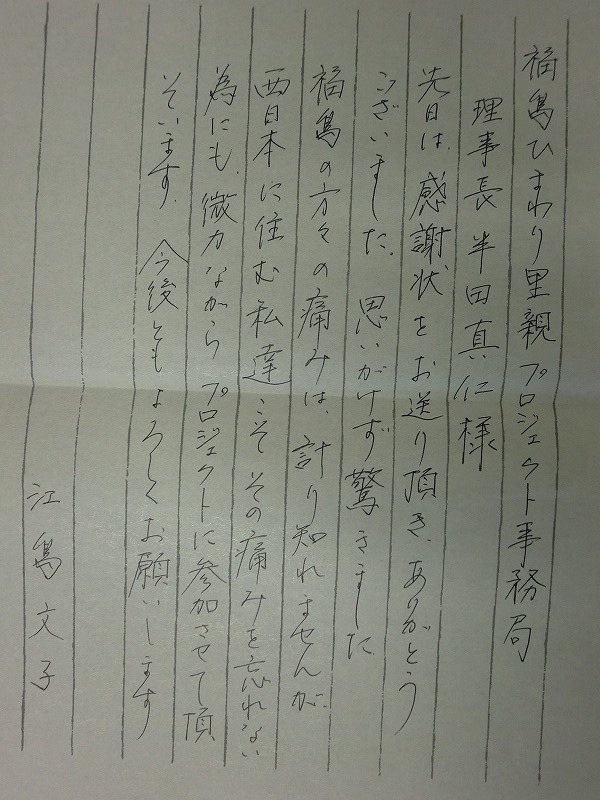 福島ひまわり里親プロジェクト事務局
理事長 半田真仁様
先日は、感謝状をお送り頂き、ありがとう
ございました。思いがけず驚きました
福島の方々の痛みは、計り知れませんが、
西日本に住む私達こそその痛みを忘れない
為にも、微力ながらプロジェクトに参加させて頂
そいます。今後ともよろしくお願いします
江島文子